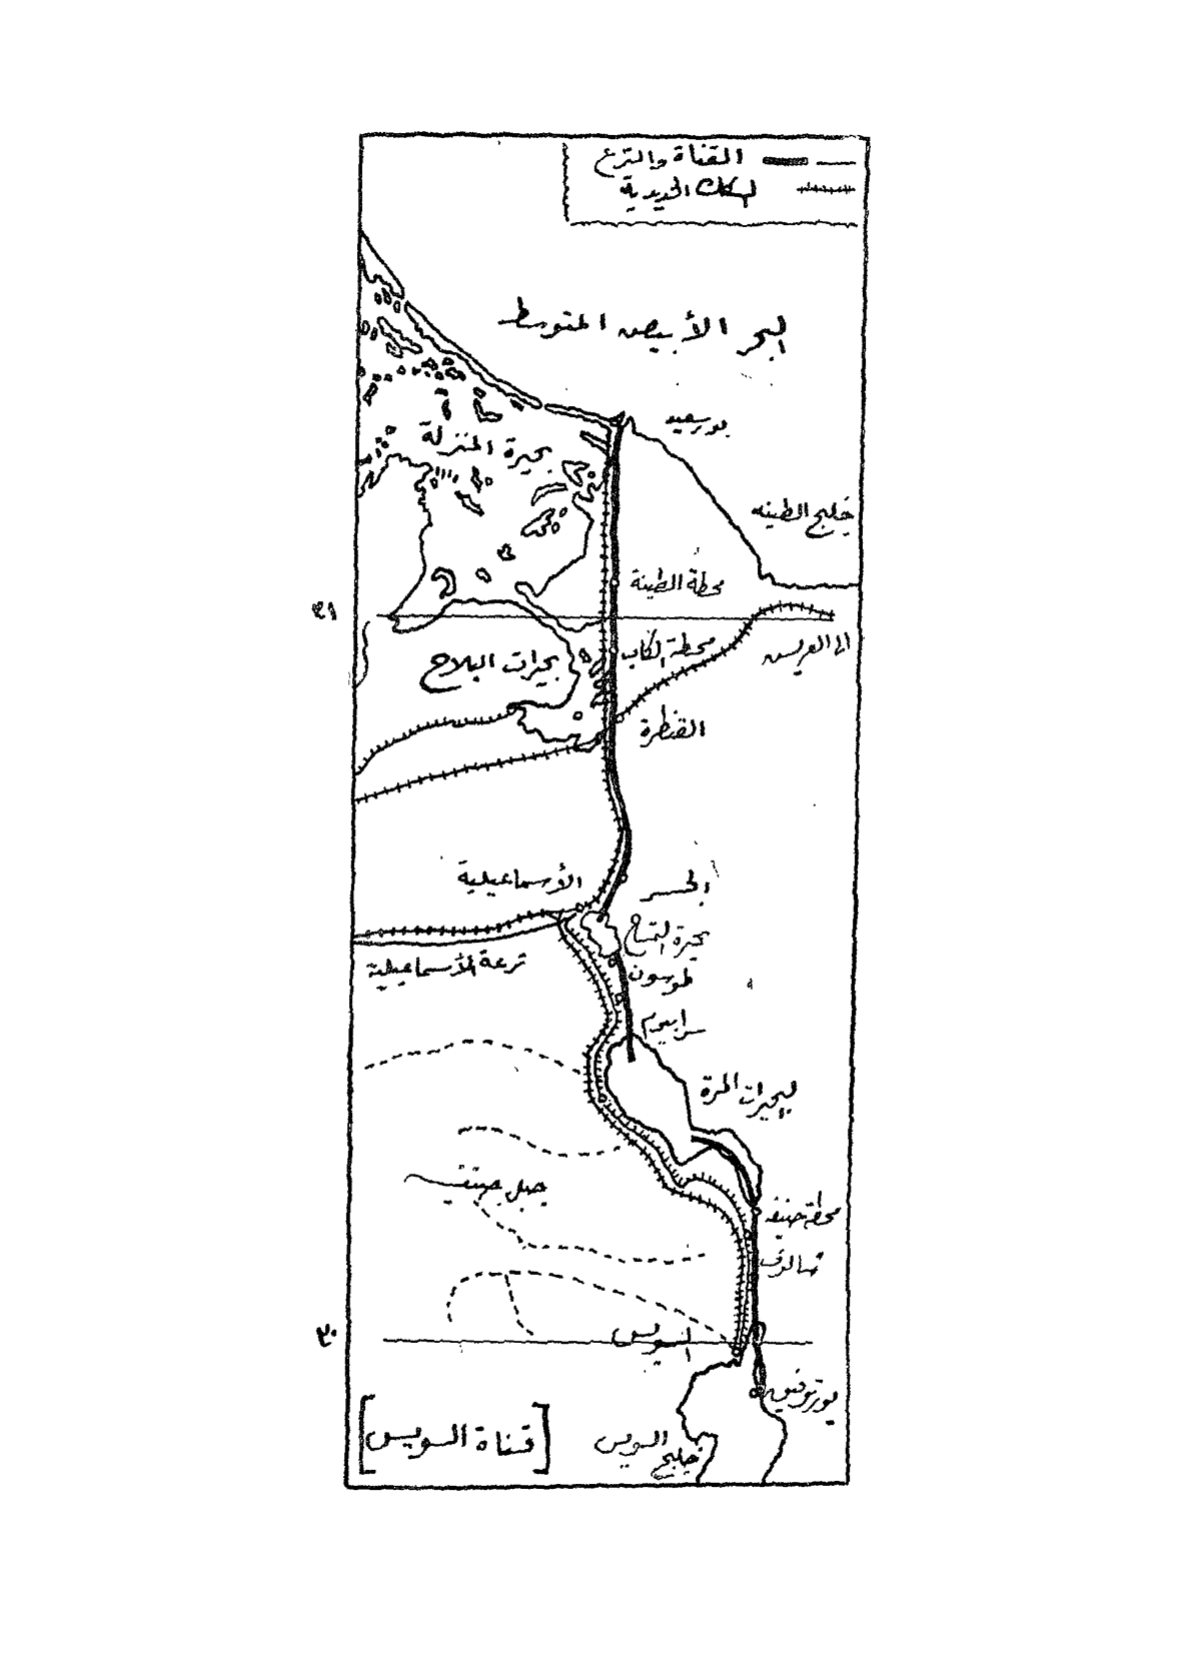 القناة والترع
السكك الحديدية
البحر الأبيض المتوسط
بورسعيد
بحيرة المنزلة
خليج الطينه
محطة الطينة
٣١
محطة الكاب
الى العريش
بحيرات البلاح
القنطرة
الجسر
الأسماعيلية
بحيرة التمساح
ترعة الأسماعيلية
طوسون
سرابيوم
البحيرات المرة
جبل جنيفه
محطة جنيفه
شالوف
٣٠
السويس
بورتوفيق
خليج السويس
[قناة السويس]